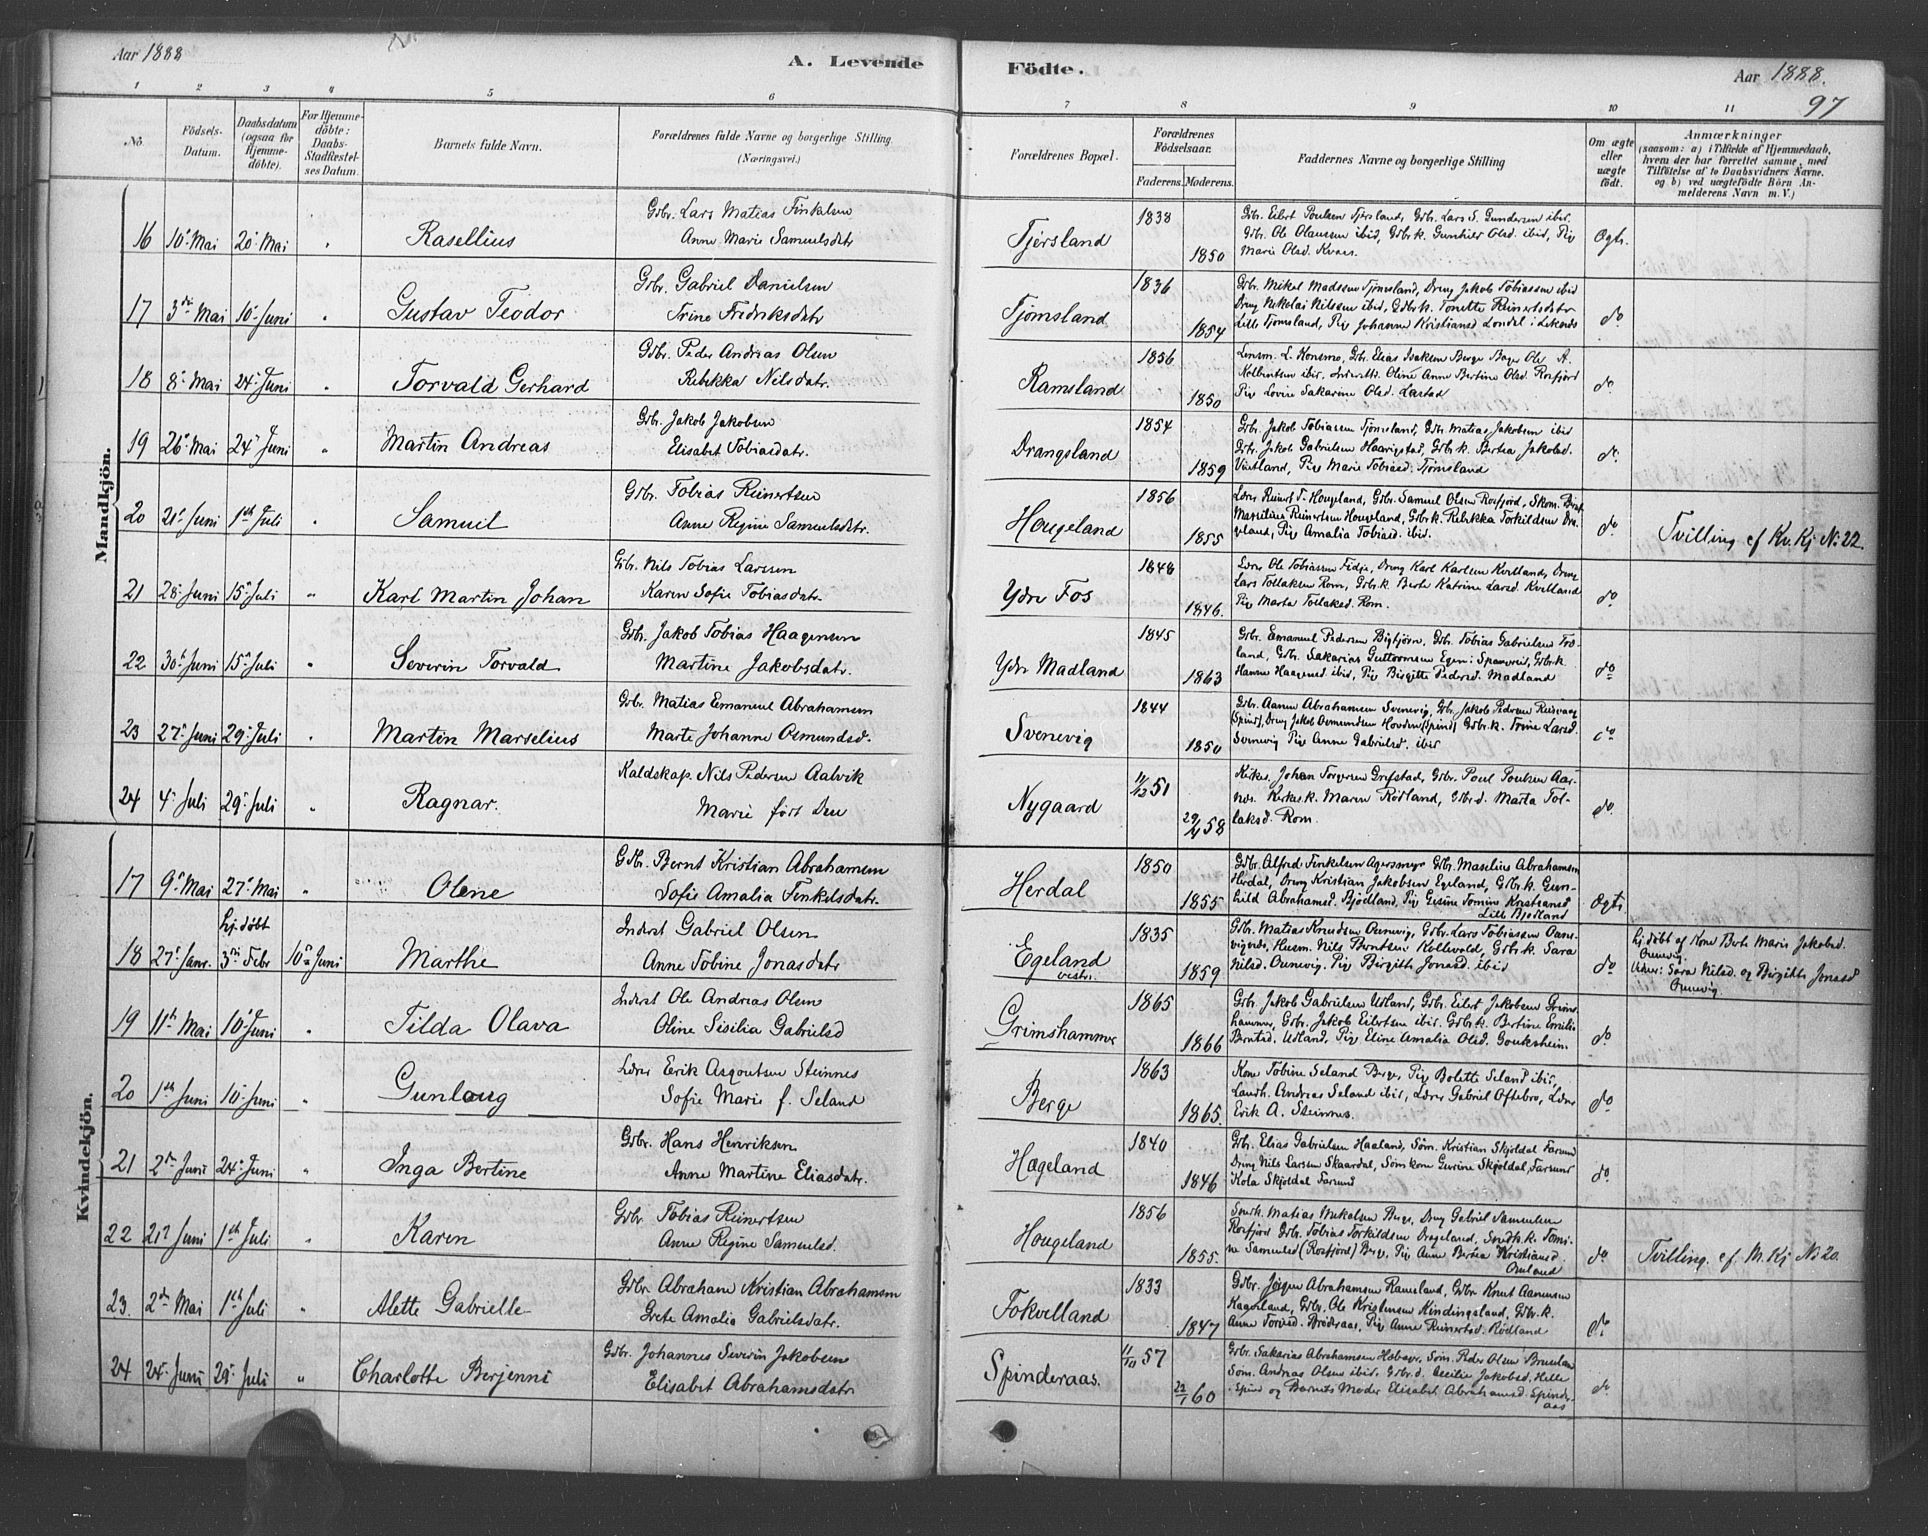 Aar 1888
A. Levende
Födte.
Aar 1888.
97
1 2 3 4 5 6 7 8 9 10 11
No. Födsels-Datum. Daabsdatum (ogsaa for Hjemmedöbte). For Hjemmedöbte: Daabs-Stadfæstelses Datum. Barnets fulde Navn. Forældrenes fulde Navne og borgerlige Stilling (Næringsvei.) Forældrenes Bopæl. Forældrenes Födselsaar. Faderens. Moderens. Faddernes Navne og borgerlige Stilling Om ægte eller uægte födt. Anmærkninger (saasom: a) i Tilfælde af Hjemmedaab, hvem der har forrettet samme, med Tilföielse af to Daabsvidners Navne. og b) ved uægtefödte Börn Anmelderens Navn m. V.)
Mandkjön.
16 10. Mai 20. Mai " Rasellius Gdbr. Lars Matias Finkelsen
Anne Marie Samuelsdtr Tjersland 1838 1850 Gdb. Eilert Poulsen Tjersland, Gdb. Lars S. Gundersen ibid.
Gdb. Ole Olaussen ibid, Gdbr.k. Gunhild Olsd. ibid, Pig
Marie Olsd. Kvaas. Ægte.
17 3die Mai 10. Juni " Gustav Teodor Gdbr. Gabriel Danielsen
Trine Fredriksdatr Tjömsland 1836 1854 Gdbr. Mikal Madssen Tjömsland, Dreng Jakob Tobiassen ibid
Dreng Nikolai Nilssen ibid, Gdbr.k. Tonette Reinertsdatr
Lille Tjömsland, Pig Johanne Kristiansd Londal i Liknes do
18 8. Mai 24. Juni " Torvald Gerhard Gdbr. Peder Andreas Olsen
Rebekka Nilsdatr. Ramsland 1856 1850 Lensm. L. Konsmo, Gbr. Elias Isaksen Berge Bager Ole A.
ibid, Oline Anne Bertine Olsd. Rosfjord
Pig Lovise Sakarine Olsd. do
19 26. Mai 24. Juni " Martin Andreas Gdb. Jakob Jakobsen
Elisabet Tobiasdatr. Drangsland 1854 1859 Gdbr. Jakob Tobiassen Tjömsland, Gdb. Matias Jakobsen ibid
Gdb. Jakob Gabrielsen Haarigstad, Gdbr.k. Bertha Jakobsd.
Vintland, Pig Marie Tobiasd. Tjömsland do
20 21. Juni 1ste Juli " Samuel Gdbr. Tobias Reinertsen
Anne Regine Samuelsdtr. Hougeland 1856 1855 Lærer Reinert T. Hougeland, Gdbr. Samuel Olsen Rosfjord, Skom.
Marselius Reinertsen Hougeland, Gdbr.k. Rebekka Torkildsen Dra-
geland, Pig Amalia Tobiasd. ibid. do Tvilling cf Kv. Kj No. 22.
21 28. Juni 15. Juli " Karl Martin Johan Gdbr. Nils Tobias Larssen
Karen Sofie Tobiasdatr. Ydre Fos 1848 1846. Lærer Ole Tobiassen Fidje, Dreng Karl Karlsen Kvitland, Dreng
Lars Tollaksen Rom, Gdbr.k. Berte Katrine Larsd. Kvitland
Pig Marta Tollaksd. Rom. do
22 30. Juni 15. Juli " Severin Torvald Gdbr. Jakob Tobias Haagensen
Martine Jakobsdatr. Ydre Madland 1845 1863 Gdbr. Emanuel Pedersen Bigtjörn, Gdb. Tobias Gabrielsen Fro-
land, Gdbr. Sakarias Guttormsen Egen i Spangereid, Gdbr.k.
Hanne Haagensd ibid, Pig Birgitte Pedersd. Madland do
23 27. Juni 29. Juli " Martin Marselius Gdb. Matias Emanuel Abrahamsen
Marte Johanne Osmundsd. Svenevig 1844 1850 Gdbr. Aanen Abrahamsen Svenevig, Gdb. Jakob Pedersen
(Spind), Dreng Jakob Osmundsen Houden (Spind) Gdbr.k. Trine Larsd.
Svenevig Pig Anne Gabrielsd. ibid do
24 4. Juli 29. Juli " Ragnar. Kaldskap. Nils Pedersen Aalvik
Marie född Deu Nygaard 11/12 51 29/4 58 Kirkes. Johan Torgersen Grefstad, Gdbr. Poul Poulsen Aar-
næs. Kirkes.k. Maren Rödland, Gdbr.d. Marta Tol-
laksd. Rom. do.
Kvindekjön.
17 9. Mai 27. Mai " Olene Gdbr. Bernt Kristian Abrahamsen
Sofie Amalia Finkelsdatr. Herdal 1850 1855 Gdbr. Alfred Finkelsen Agersmyr Gdbr. Maselius Abrahamsen
Herdal, Dreng Kristian Jakobsen Egeland, Gdbr.k. Gun-
hild Abrahamsd. Bjodland, Pig Gesine Tomine Kristiansd
Lille Bjodland Ægte
18 27. Janr. hj. döbt 3die Febr 10. Juni Marthe Inderst Gabriel Olsen
Anne Tobine Jonasdatr Egeland vestr. 1835 1859 Gdb. Matias Knudsen Ounevig, Gdbr. Lars Tobiassen
Husm. Nils Berntsen Kollevold, Gdbr.k. Sara
Nilsd. Ounevig. Pig Birgitte Jonasd. ibid do hj. döbt af Kone Berte Marie Jakobsd.
Ounevig.
Vidner: Sara Nilsd. og Birgitte Jonasd
Ounevig
19 11te Mai 10. Juni " Tilda Olava Inderst Ole Andreas Olsen
Oline Sisilia Gabrielsd Grimshammer 1865 1866 Gdbr. Jakob Gabrielsen Udland, Gdbr. Eilert Jakobsen Grims-
hammer, Gdbr. Jakob Eilertsen ibid. Gdbr.k. Bertine Emilie
Berntsd. Udland, Pig Eline Amalia Olsd. Gouksheim. do
20 1ste Juni 10. Juni " Gunlaug Lærer Erik Asgoutsen Steinnes
Sofie Marie f. Seland Berge 1863 1865. Kone Tobine Seland Berge, Pig Bolette Seland ibid,
Landh. Andreas Seland ibid, Lærer Gabriel Oftebro, Lærer
Erik A. Steinnes. do
21 2den Juni 24. Juni " Inga Bertine Gdbr. Hans Henriksen
Anne Martine Eliasdatr. Hægeland 1840 1846 Gdb. Elias Gabrielsen Haaland, Söm. Kristian Skjoldal Farsund
Dreng Nils Larsen Skaardal, Sömkone Gurine Skjoldal, Farsund
Kola Skjoldal Farsund do
22 21. Juni 1ste Juli " Karen Gdbr. Tobias Reinertsen
Anne Regine Samuelsd. Hougeland 1856 1855. Snedk. Matias Mikalsen Berge, Dreng Gabriel Samuelsen
Rosfjord Gdbr. Tobias Torkildsen Drageland, Snedk.k. Tomi-
ne Samuelsd (Rosfjord) Berge, Pig Anne Bertea Kristiansd.
Omland do Tvilling. cf. M. Kj No 20.
23. 2den Mai 1ste Juli " Alette Gabrielle Gdbr. Abraham Kristian Abrahamsen
Grete Amalia Gabrielsdatr. Fokvelland 1833 1847 Gdbr. Jörgen Abrahamsen Ramsland, Gdbr Knut Aanensen
Kaaveland, Gdbr. Ole Kristensen Kindingsland, Gdbr.k.
Anne Torisd. Brödraas, Pig Anne Reinertsd. Rödland do.
24 24. Juni 29. Juli " Charlotte Berjenni Gdbr. Johannes Severin Jakobsen
Elisabet Abrahamsdatr Spinderaas. 11/10 57 22/1 60 Gdbr. Sakarias Abrahamsen Söm. Peder Olsen
Söm. Andreas Olsen ibid. Gdbr.d. Cecilie Jakobsd. Helle
Spind og Barnets Moder Elisabet Abrahamsd. Spinder-
aas do.